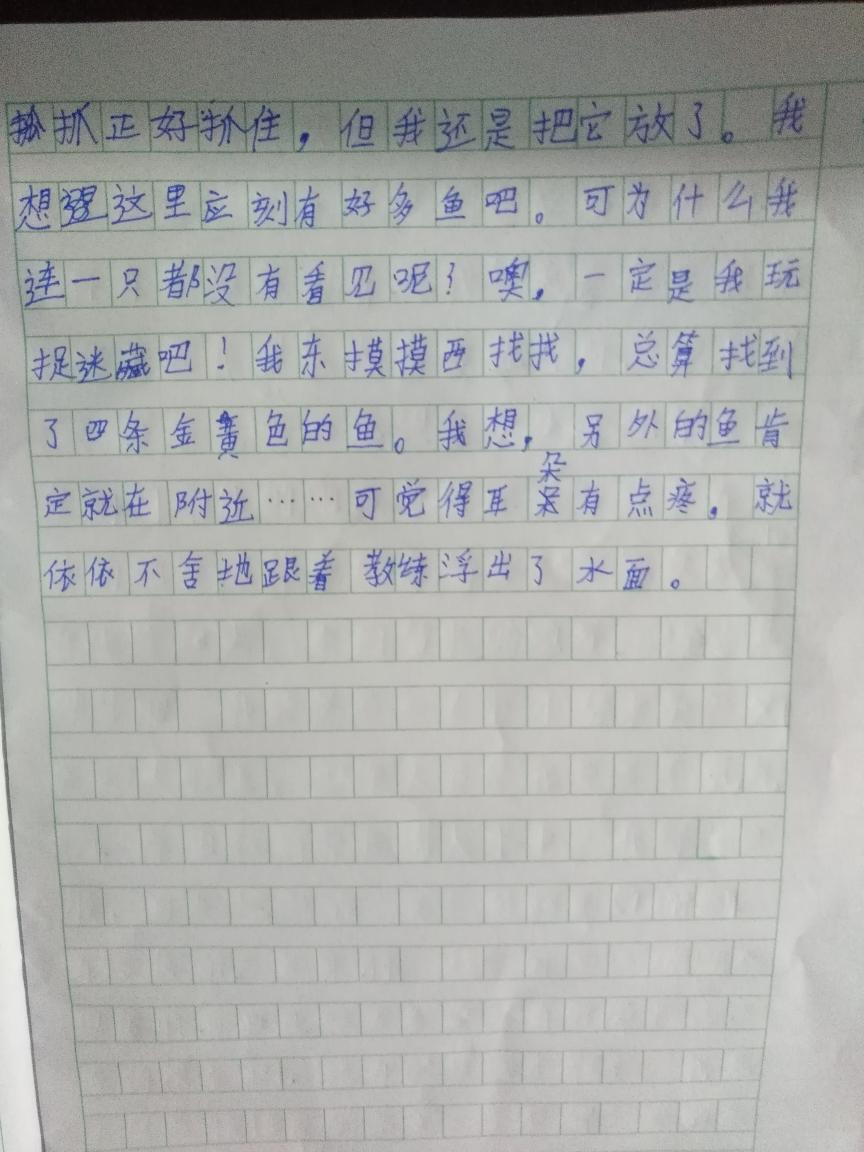 抓正好抓住，但我还是把它放了。我
想这里应刻有好多鱼吧。可为什么我
连一只都没有看见呢？噢，一定是我玩
捉迷藏吧！我东摸摸西找找，总算找到
了四条金黄色的鱼。我想，另外的鱼肯
定就在附近……可觉得耳朵有点疼。就
依依不舍地跟着教练浮出了水面。